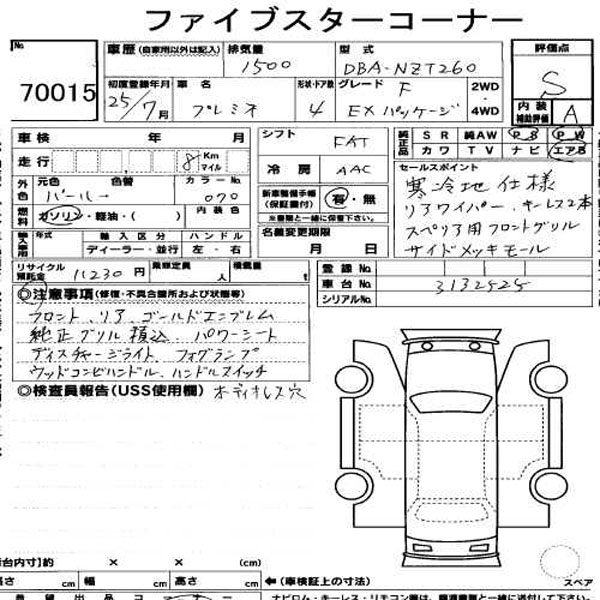 ファイブスターコーナー
No.
70015
車歴(自家用以外は記入) 排気量 1500 型式 DBA-NZT260
評価点 S
初度登録年月 25/7月 車名 プレミオ 形状・ドア数 4 グレード F EXパッケージ 2WD・4WD
内装補助評価 A
車検 年 月
走行 8 Km マイル
外色 元色 パール 色替 カラーNo. 070
燃料 ガソリン・軽油・( ) 内装色
輸入車用 年式 輸入区分 ハンドル
ディーラー・並行 左・右
シフト FAT
冷房 AAC
新車整備手帳(保証書付) 有・無
※書類と一緒に保管下さい。
名義変更期限
月 日
純正品 SR 純AW PS PW
カワ TV ナビ エアB
セールスポイント
寒冷地仕様
リアワイパー、キーレス2本
スペリア用フロントグリル
サイドメッキモール
リサイクル預託金 11230円 乗車定員 人 積載量 t
登録No.
車台No. 3132525
シリアルNo.
◎注意事項(修復・不具合箇所および状態等)
フロント、リア、ゴールドエンブレム
純正グリル積込、パワーシート
ディスチャージライト、フォグランプ
ウッドコンビハンドル、ハンドルスイッチ
◎検査員報告(USS使用欄) オーディオレス穴
スペア
荷台内寸】約 × × (cm)
高さ cm 幅 cm 高さ cm ←(車検証上の寸法)
希望出品コーナー
ナビロム・キーレス・リモコン類は、譲渡書類と一緒に送付して下さい。